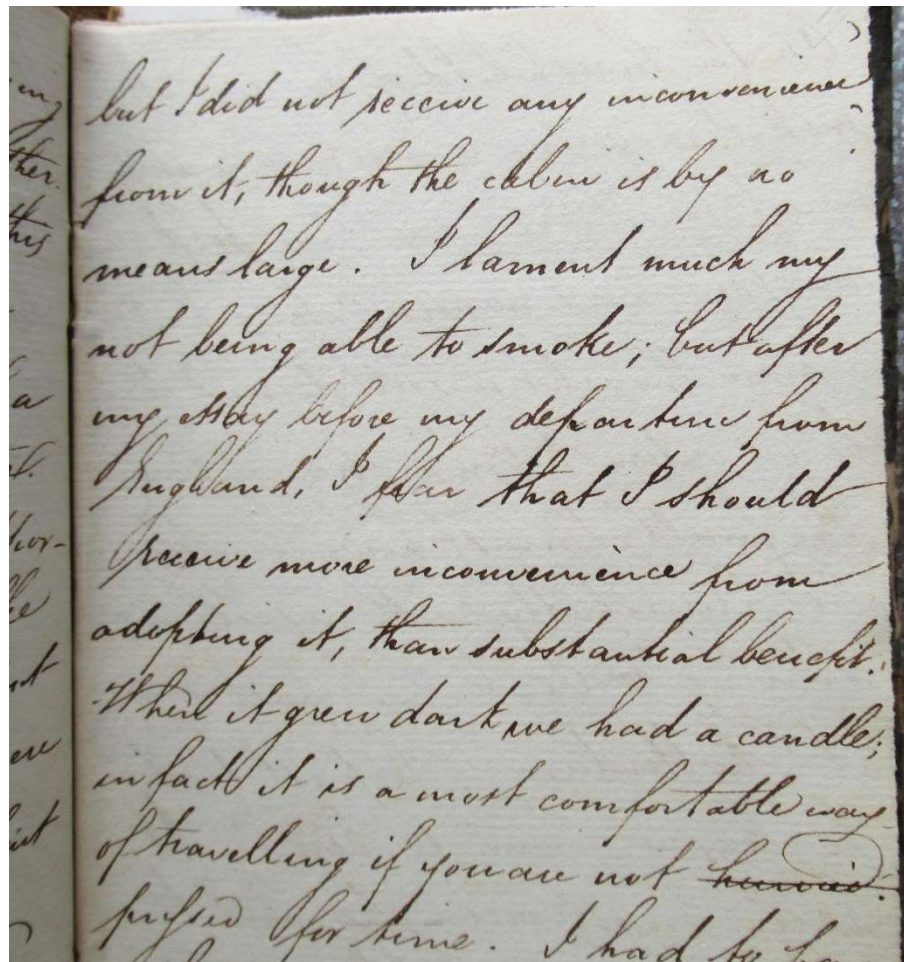 but I did not receive any inconvenience
from it, though the cabin is by no
means large. I lament much my
not being able to smoke; but after
my stay before my departure from
England, I fear that I should
receive more inconvenience from
adopting it, than substantial benefit.
When it grew dark we had a candle;
in fact it is a most comfortable way
of travelling if you are not hurried
pressed for time. I had to